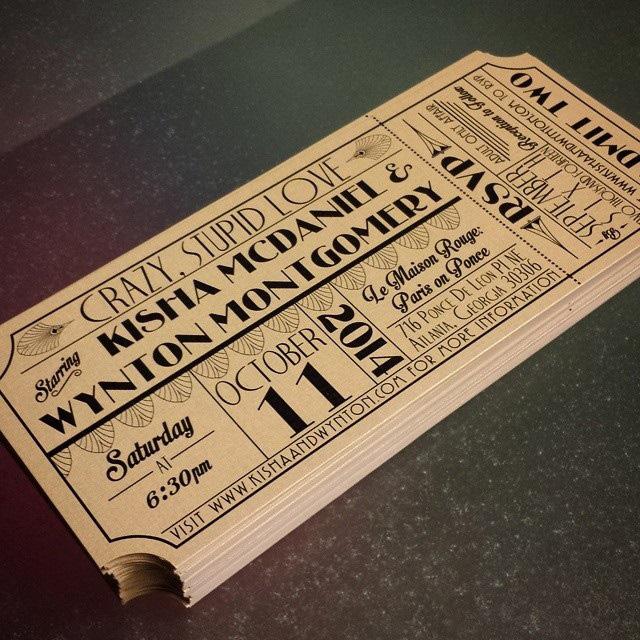 CRAZY, STUPID LOVE
Starring
KISHA MCDANIEL &
WYNTON MONTGOMERY
Saturday
AT
6:30pm
OCTOBER
11
2014
Le Maison Rouge:
Paris on Ponce
716 PONCE DE LEON PL NE
ATLANTA, GEORGIA 30306
VISIT WWW.KISHAANDWYNTON.COM FOR MORE INFORMATION
RSVP
SEPTEMBER
ADULT ONLY AFFAIR
Reception to follow
TO RSVP
DMIT TWO